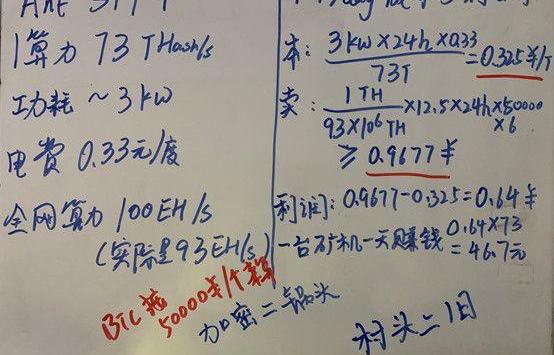 1算力 73 THash/s
功耗 ~ 3kw
电费 0.33元/度
全网算力 100EH/s
(实际是93EH/s)
BTC 按
50000¥/个算
加密二锅头
本: 3kw×24h×0.33
73T
=0.325¥/T
卖: 1TH
93×10⁶TH
×12.5×24h×50000
×6
≥ 0.9677¥
利润: 0.9677-0.325=0.64¥
一台矿机一天赚钱 0.64×73
=46.7元
村头二旧